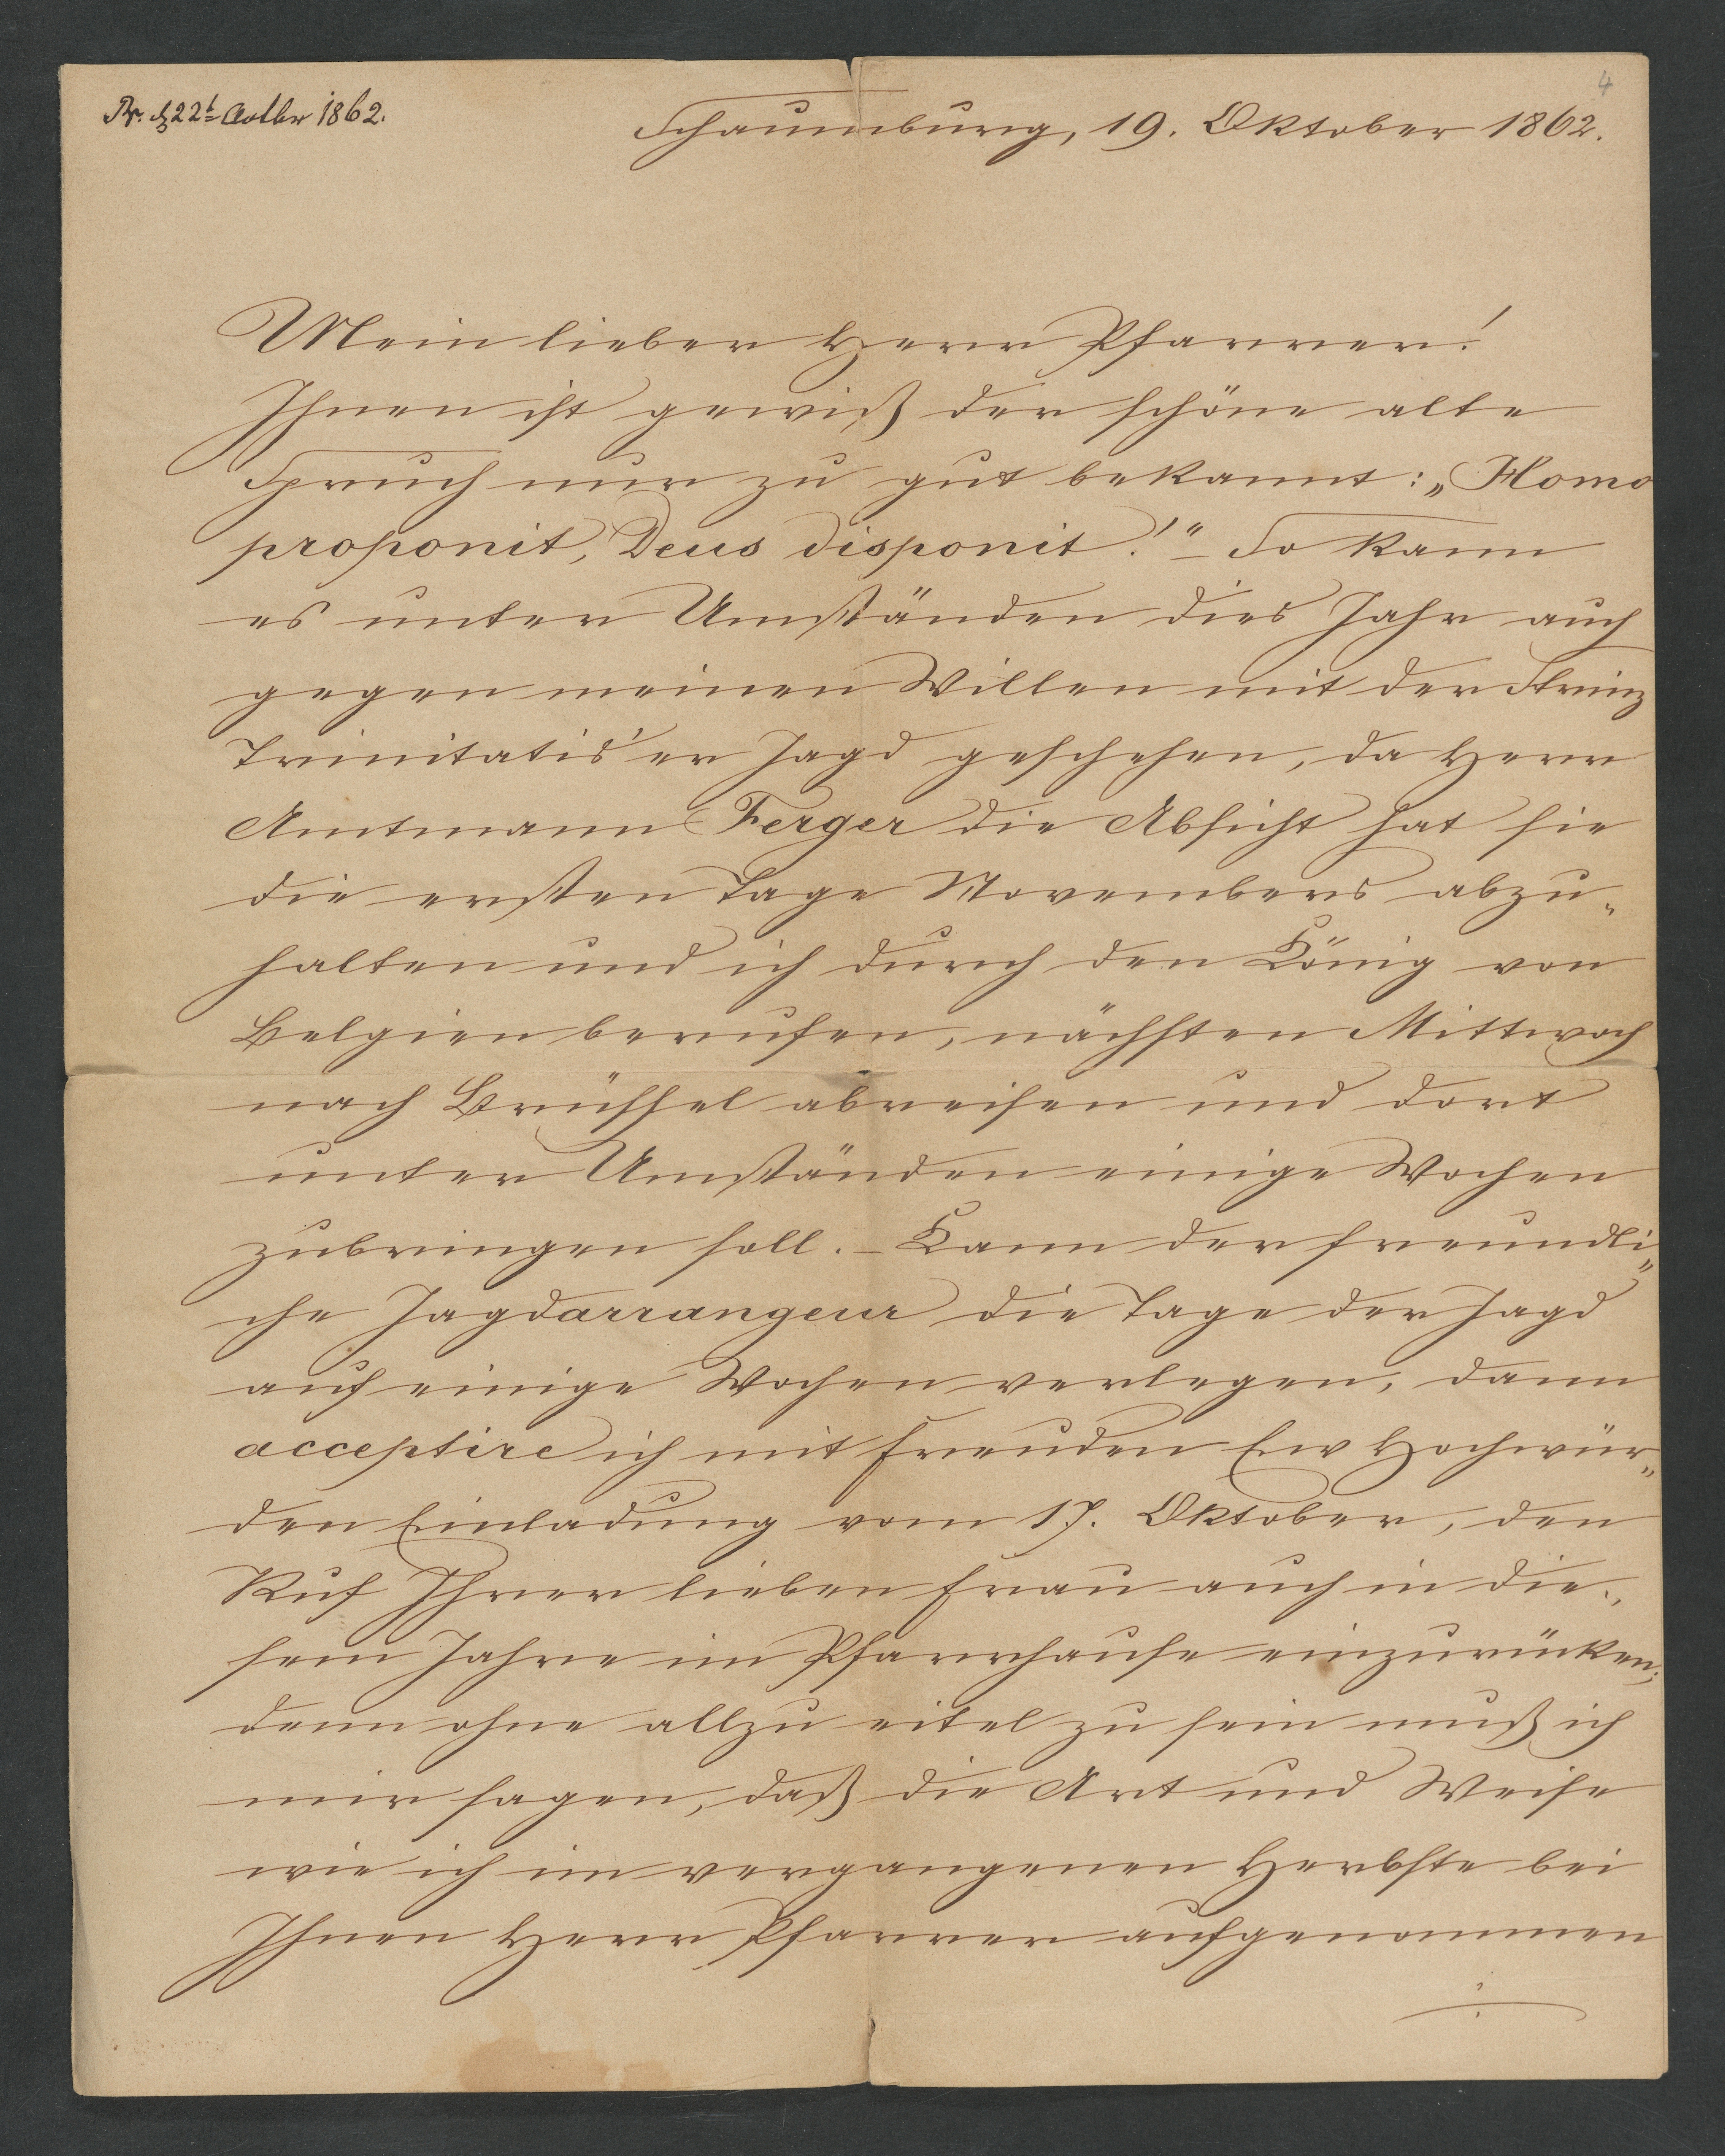 4
Pr. d 22t Octbr 1862.
Schaumburg, 19. Oktober 1862.
Mein lieber Herr Pfarrer!
Ihnen ist gewiß der schöne alte
Spruch nur zu gut bekannt: „Homo
proponit, Deus disponit!" – So kann
es unter Umständen dies Jahr auch
gegen meinen Willen mit der Strinz
Trinitatis'er Jagd geschehen, da Herr
Amtmann Ferger die Absicht hat sie
die ersten Tage Novembers abzu„
halten und ich durch den König von
Belgien berufen, nächsten Mittwoch
nach Brüssel abreisen und dort
unter Umständen einige Wochen
zubringen soll. – Kann der freundli„
che Jagdarrangeur die Tage der Jagd
auf einige Wochen verlegen, dann
acceptire ich mit Freuden Ew Hochwür„
den Einladung vom 17. Oktober, den
Ruf Ihrer lieben Frau auch in die„
sem Jahre im Pfarrhause einzurücken;
denn ohne allzu eitel zu sein muß ich
mir sagen, daß die Art und Weise
wie ich im vergangenen Herbste bei
Ihnen Herr Pfarrer aufgenommen